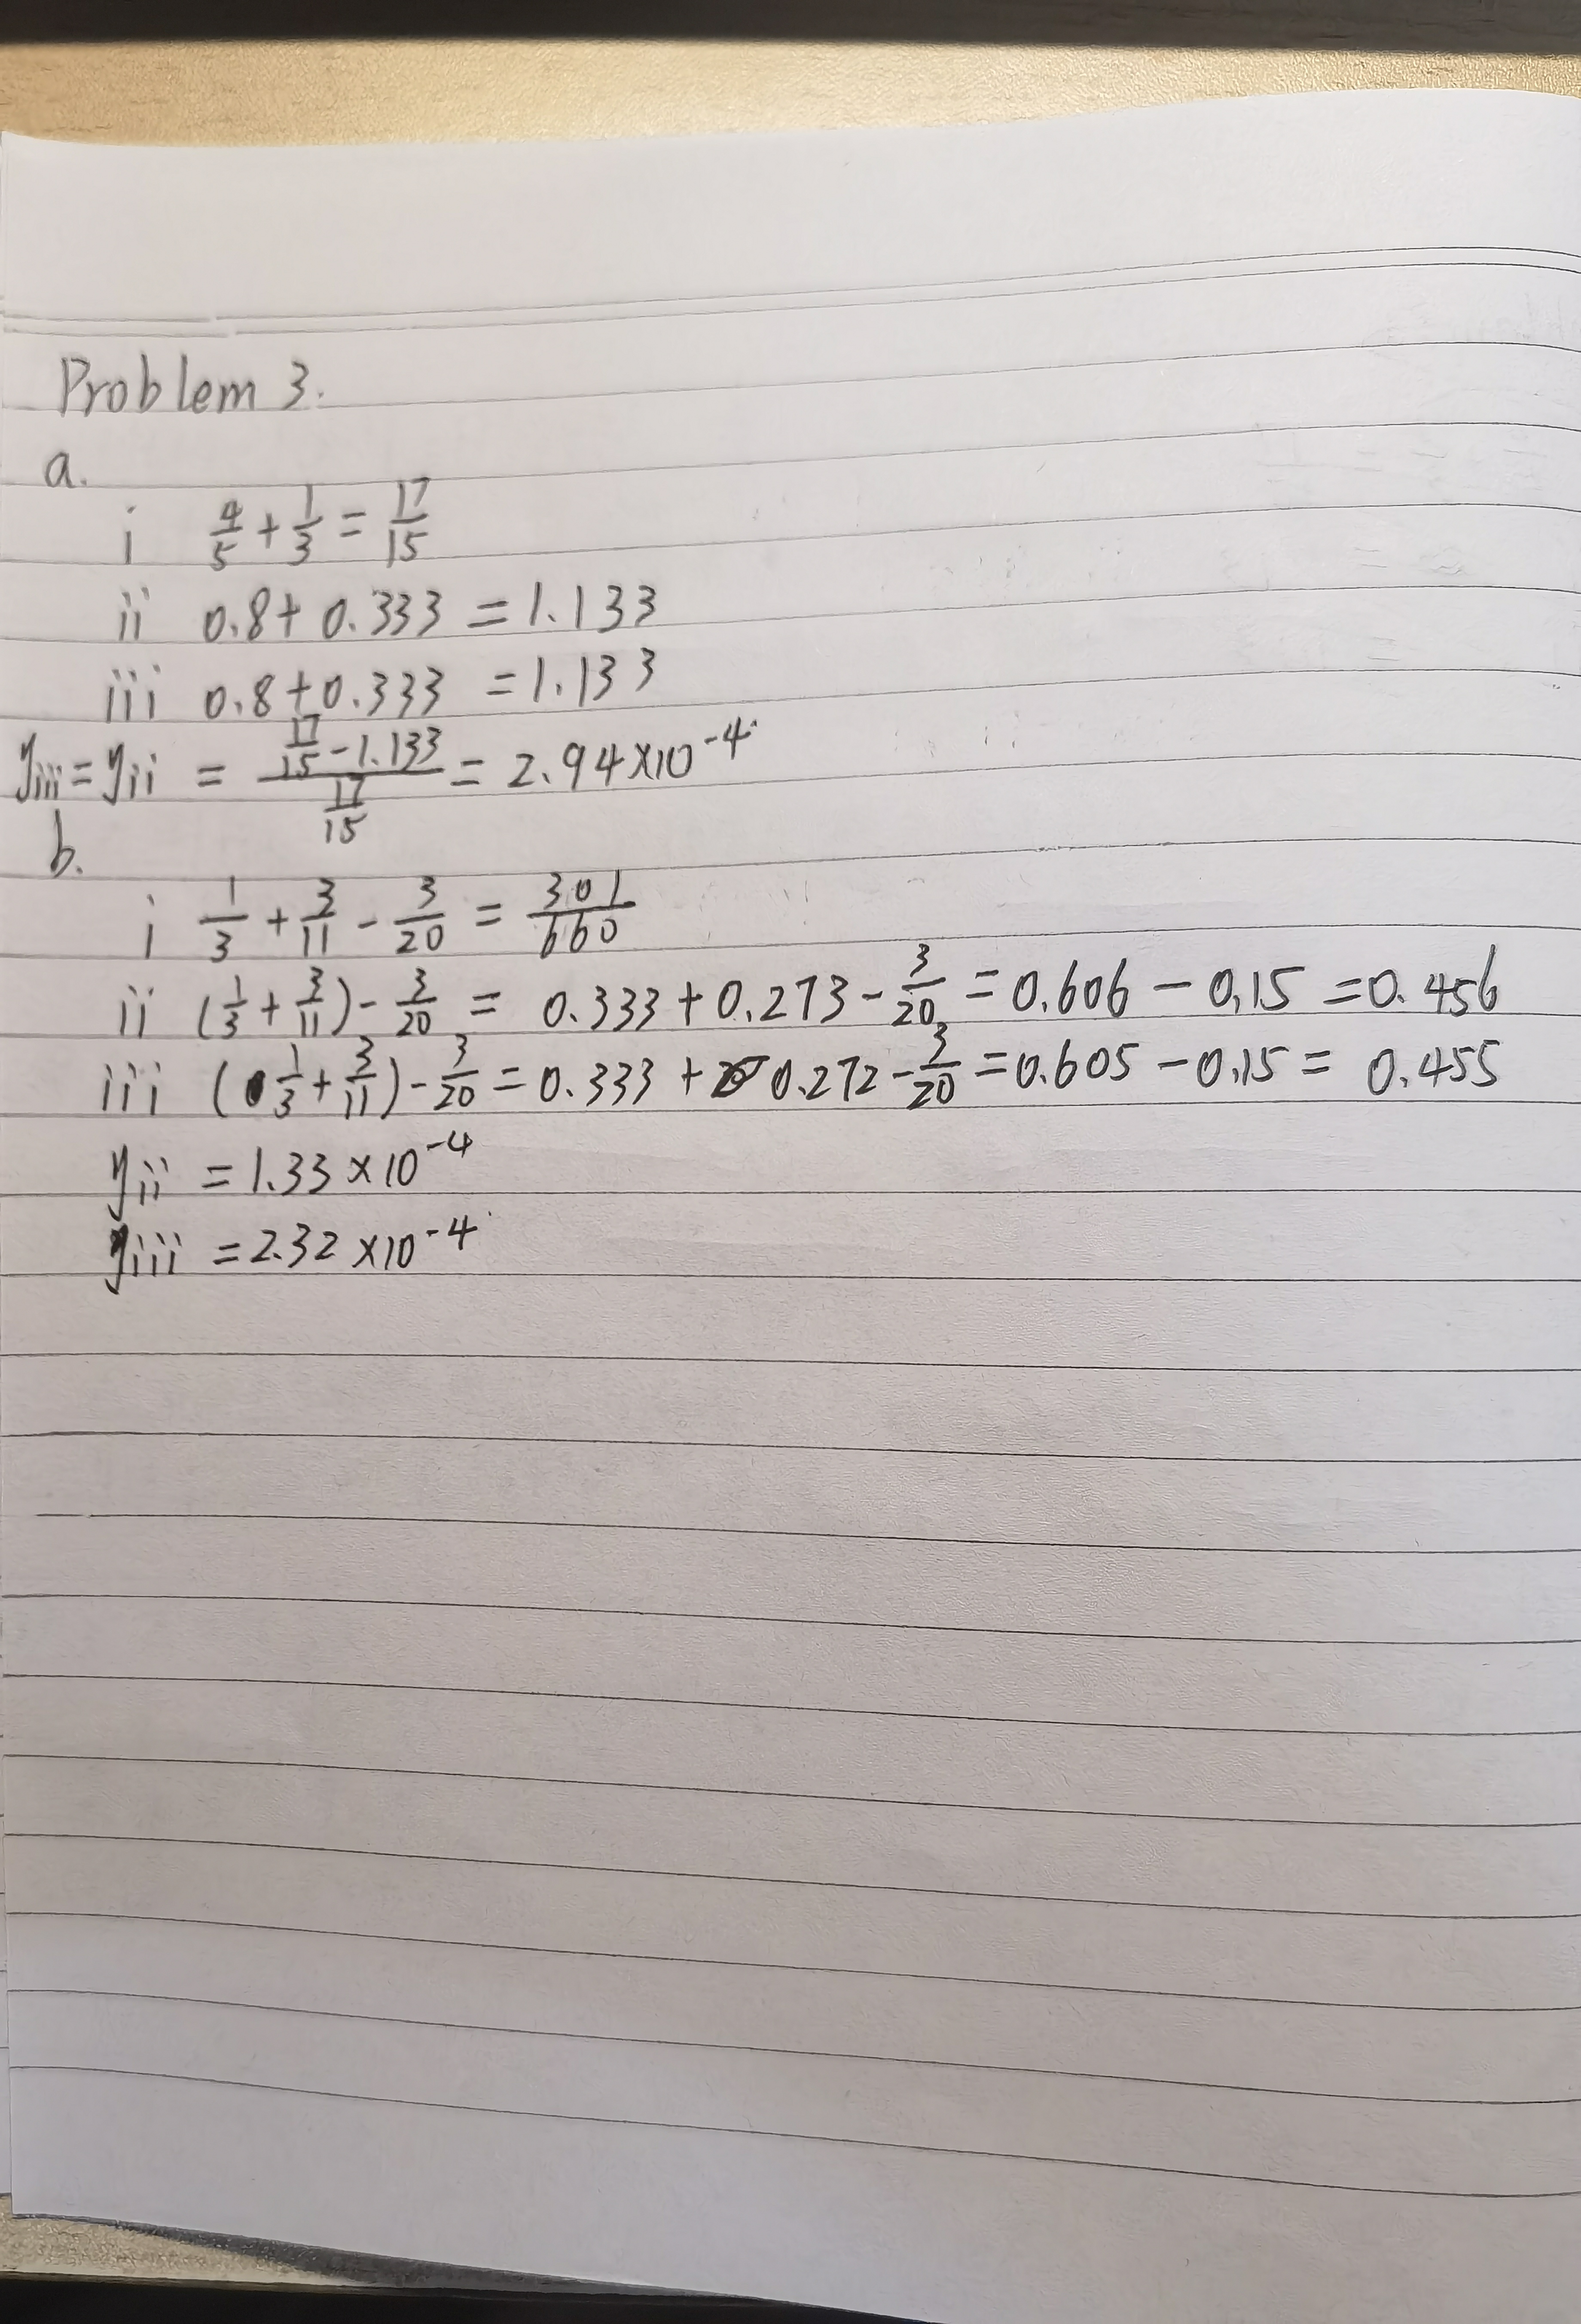 Problem 3.
a.
i 4/5 + 1/3 = 17/15
ii 0.8 + 0.333 = 1.133
iii 0.8 + 0.333 = 1.133
yiii = yii = (17/15 - 1.133)/(17/15) = 2.94 × 10^-4
b.
i 1/3 + 3/11 - 3/20 = 301/660
ii (1/3 + 3/11) - 3/20 = 0.333 + 0.273 - 3/20 = 0.606 - 0.15 = 0.456
iii (1/3 + 3/11) - 3/20 = 0.333 + 0.272 - 3/20 = 0.605 - 0.15 = 0.455
yii = 1.33 × 10^-4
yiii = 2.32 × 10^-4